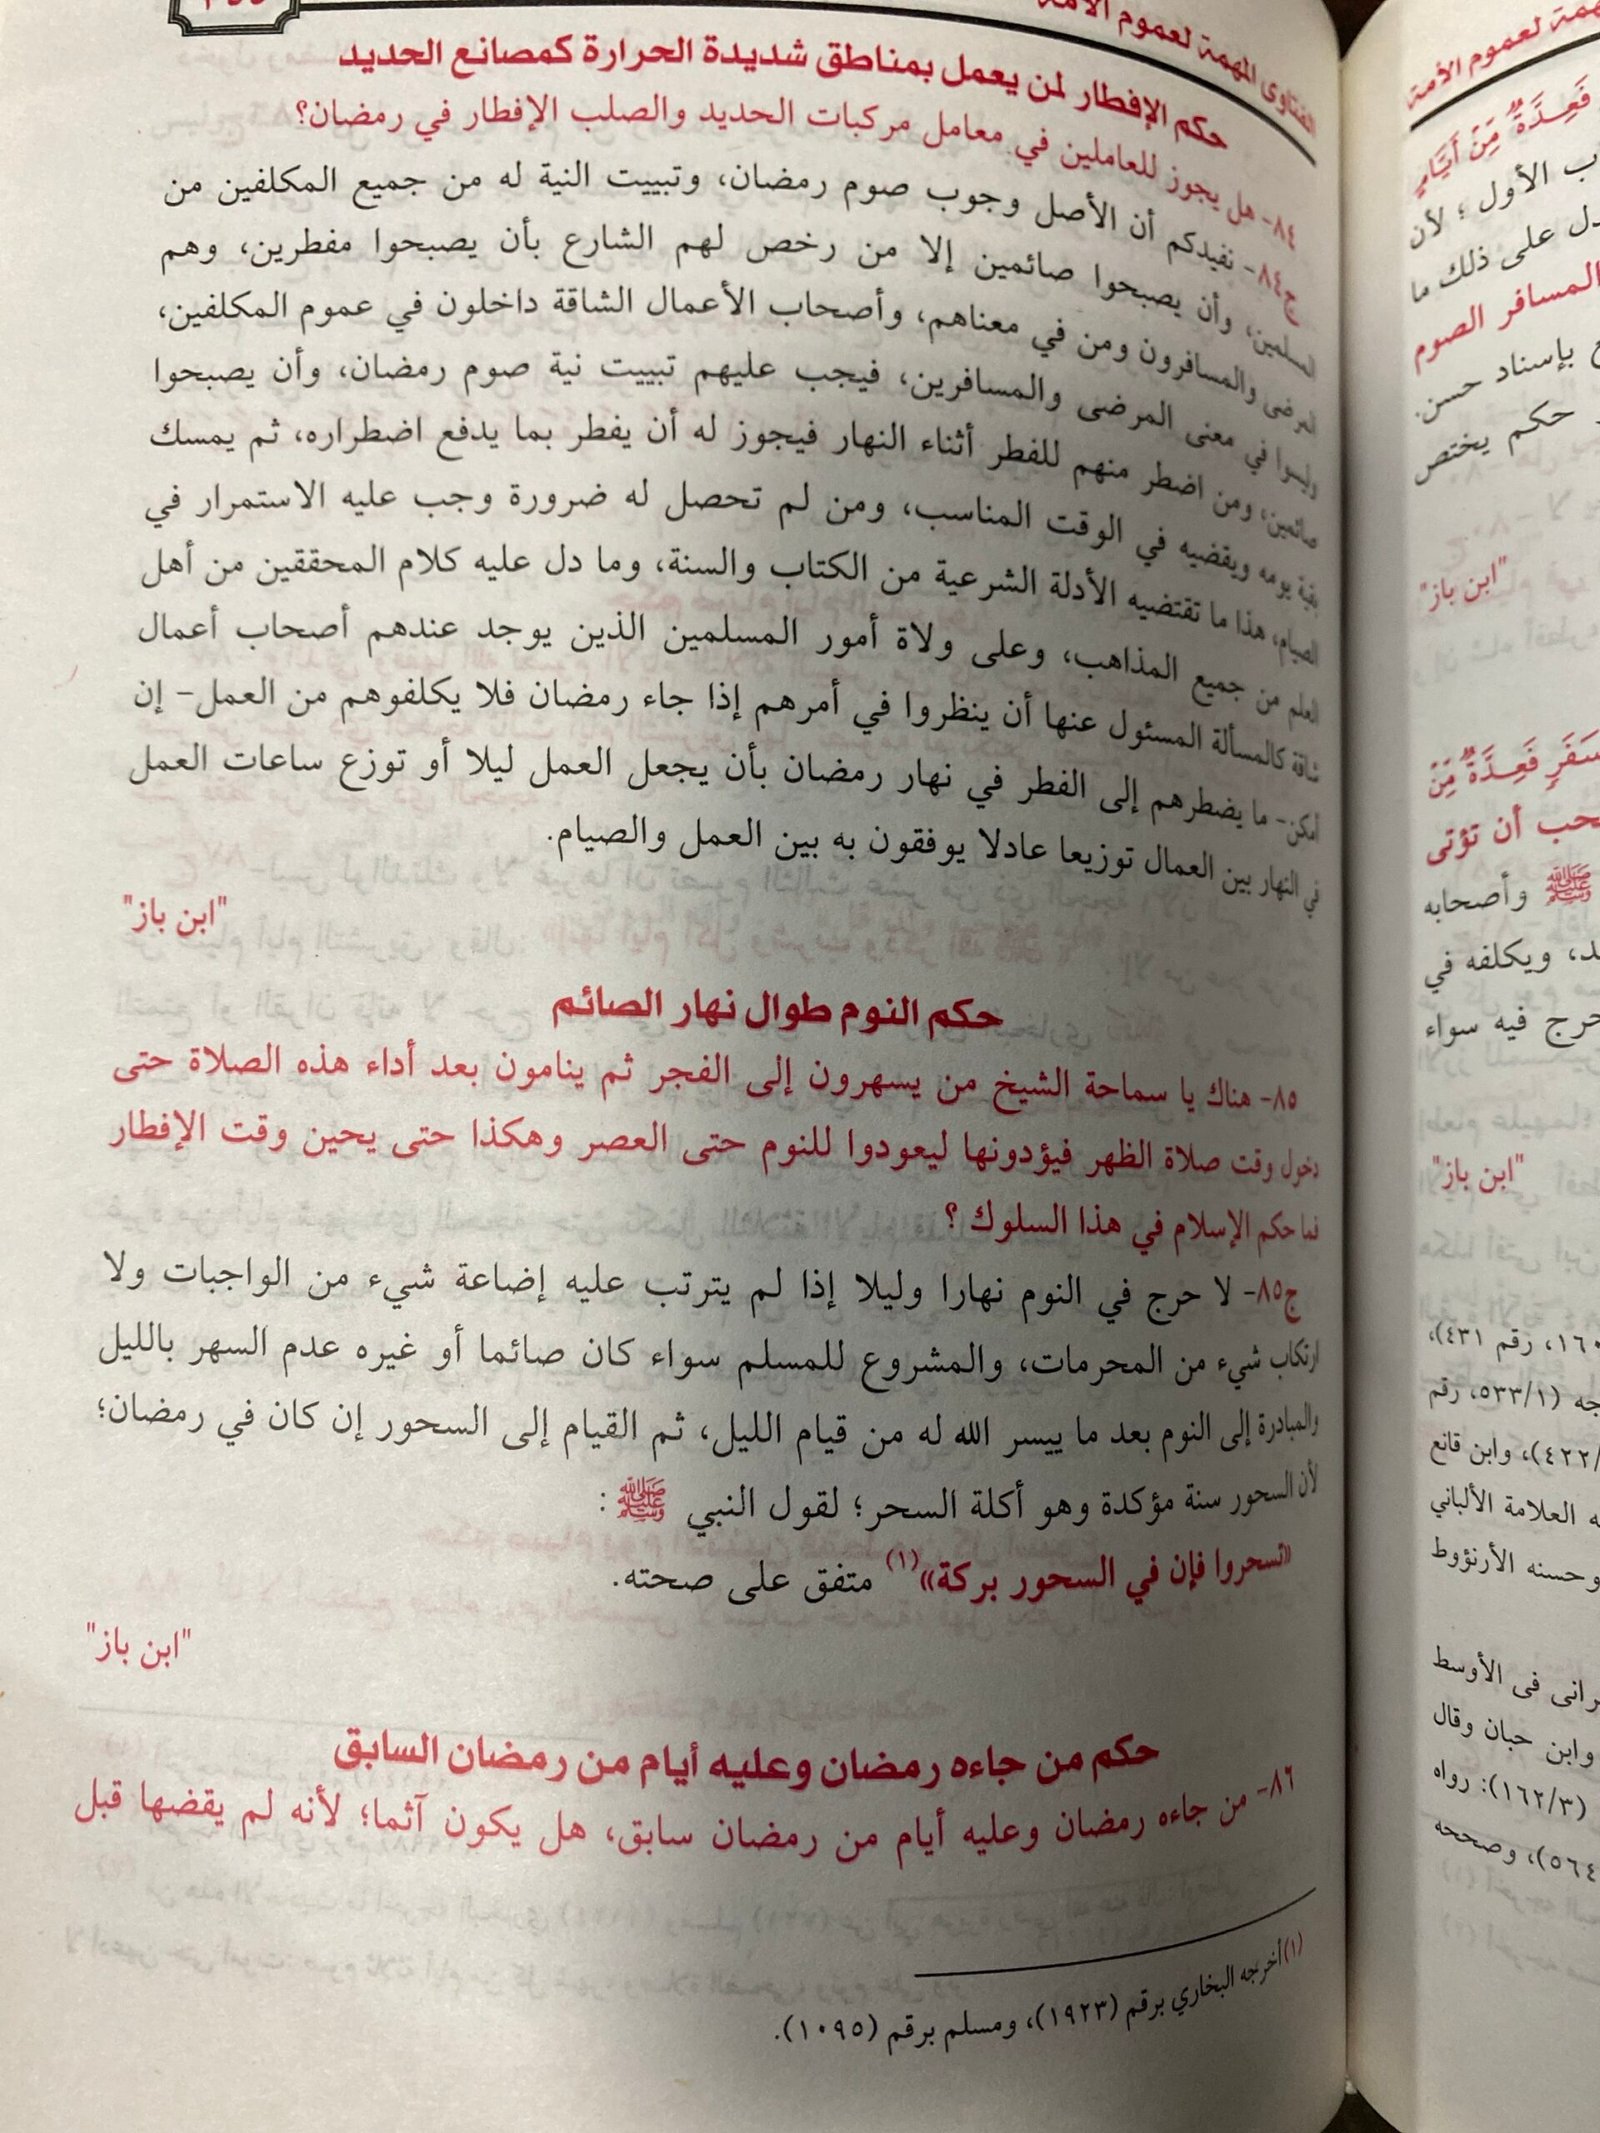 الفتاوى المهمة لعموم الأمة
حكم الإفطار لمن يعمل بمناطق شديدة الحرارة كمصانع الحديد
٨٤- هل يجوز للعاملين في معامل مركبات الحديد والصلب الإفطار في رمضان؟
ج٨٤- نفيدكم أن الأصل وجوب صوم رمضان، وتبييت النية له من جميع المكلفين من
المسلمين، وأن يصبحوا صائمين إلا من رخص لهم الشارع بأن يصبحوا مفطرين، وهم
المرضى والمسافرون ومن في معناهم، وأصحاب الأعمال الشاقة داخلون في عموم المكلفين،
وليسوا في معنى المرضى والمسافرين، فيجب عليهم تبييت نية صوم رمضان، وأن يصبحوا
صائمين، ومن اضطر منهم للفطر أثناء النهار فيجوز له أن يفطر بما يدفع اضطراره، ثم يمسك
بقية يومه ويقضيه في الوقت المناسب، ومن لم تحصل له ضرورة وجب عليه الاستمرار في
الصيام، هذا ما تقتضيه الأدلة الشرعية من الكتاب والسنة، وما دل عليه كلام المحققين من أهل
العلم من جميع المذاهب، وعلى ولاة أمور المسلمين الذين يوجد عندهم أصحاب أعمال
شاقة كالمسألة المسئول عنها أن ينظروا في أمرهم إذا جاء رمضان فلا يكلفوهم من العمل- إن
أمكن- ما يضطرهم إلى الفطر في نهار رمضان بأن يجعل العمل ليلا أو توزع ساعات العمل
في النهار بين العمال توزيعا عادلا يوفقون به بين العمل والصيام.
"ابن باز"
حكم النوم طوال نهار الصائم
٨٥- هناك يا سماحة الشيخ من يسهرون إلى الفجر ثم ينامون بعد أداء هذه الصلاة حتى
دخول وقت صلاة الظهر فيؤدونها ليعودوا للنوم حتى العصر وهكذا حتى يحين وقت الإفطار
فما حكم الإسلام في هذا السلوك ؟
ج٨٥- لا حرج في النوم نهارا وليلا إذا لم يترتب عليه إضاعة شيء من الواجبات ولا
ارتكاب شيء من المحرمات، والمشروع للمسلم سواء كان صائما أو غيره عدم السهر بالليل
والمبادرة إلى النوم بعد ما ييسر الله له من قيام الليل، ثم القيام إلى السحور إن كان في رمضان؛
لأن السحور سنة مؤكدة وهو أكلة السحر؛ لقول النبي ﷺ :
«تسحروا فإن في السحور بركة»(١) متفق على صحته.
"ابن باز"
حكم من جاءه رمضان وعليه أيام من رمضان السابق
٨٦- من جاءه رمضان وعليه أيام من رمضان سابق، هل يكون آثما؛ لأنه لم يقضها قبل
(١) أخرجه البخاري برقم (١٩٢٣)، ومسلم برقم (١٠٩٥).
لعموم الأمة
فَعِدَّةٌ مِّنْ أَيَّامٍ
الأول ؛ لأن
على ذلك ما
المسافر الصوم
بإسناد حسن.
حكم يختص
"ابن باز"
سَفَرٍ فَعِدَّةٌ مِّنْ
أن تؤتى
ﷺ وأصحابه
ويكلفه في
حرج فيه سواء
"ابن باز"
رقم ٤٣١)،
(٥٣٣/١، رقم
وابن قانع
العلامة الألباني
وحسنه الأرنؤوط
فى الأوسط
وابن حبان وقال
(١٦٢/٣): رواه
وصححه